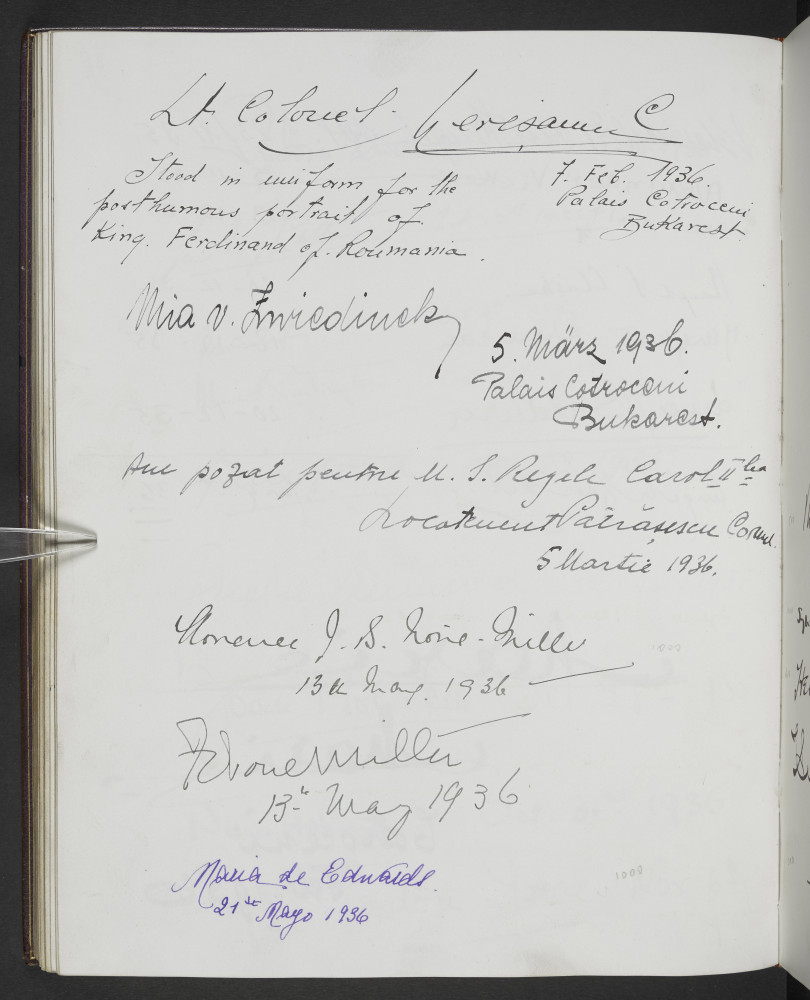 Lt. Colonel C
7. Feb. 1936.
Palais Cotroceni
Bukarest.
Stood in uniform for the
posthumous portrait of
King. Ferdinand of. Roumania.
Mia v. Zwiedinek
5. März 1936.
Palais Cotroceni
Bukarest.
Am pozat pentru M. S. Regele Carol II lea
Locotenent Pătrășescu Cornel.
5 Martie 1936.
Florence J. S. None-Miller
13th May. 1936
13th May 1936
Maria de Edwards.
21st Mayo 1936